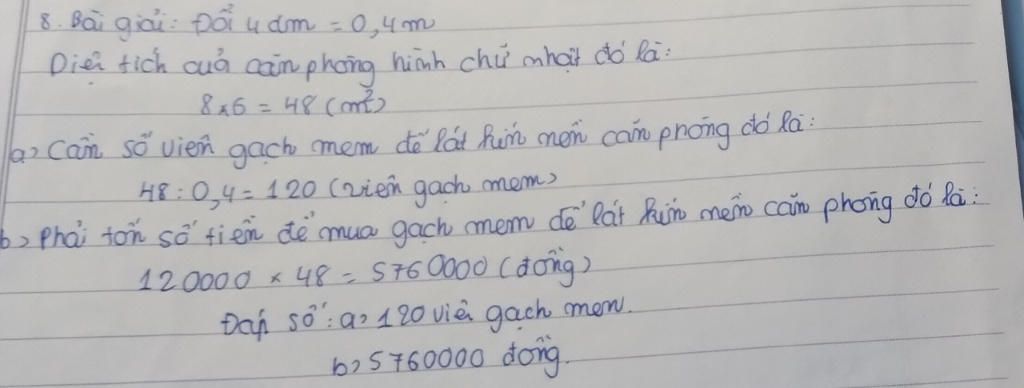 8. Bài giải: Đổi 4 dm = 0,4m
Diện tích cuả căn phòng hình chữ nhật đó là:
8 x 6 = 48 (m²)
a> Cần số viên gạch mem để lát kín nền căn phòng đó là:
48 : 0,4 = 120 (viên gạch mem)
b> Phải tốn số tiền để mua gạch mem để lát kín nền căn phòng đó là:
120000 x 48 = 5760000 (đồng)
Đáp số: a> 120 viên gạch men.
b> 5760000 đồng.